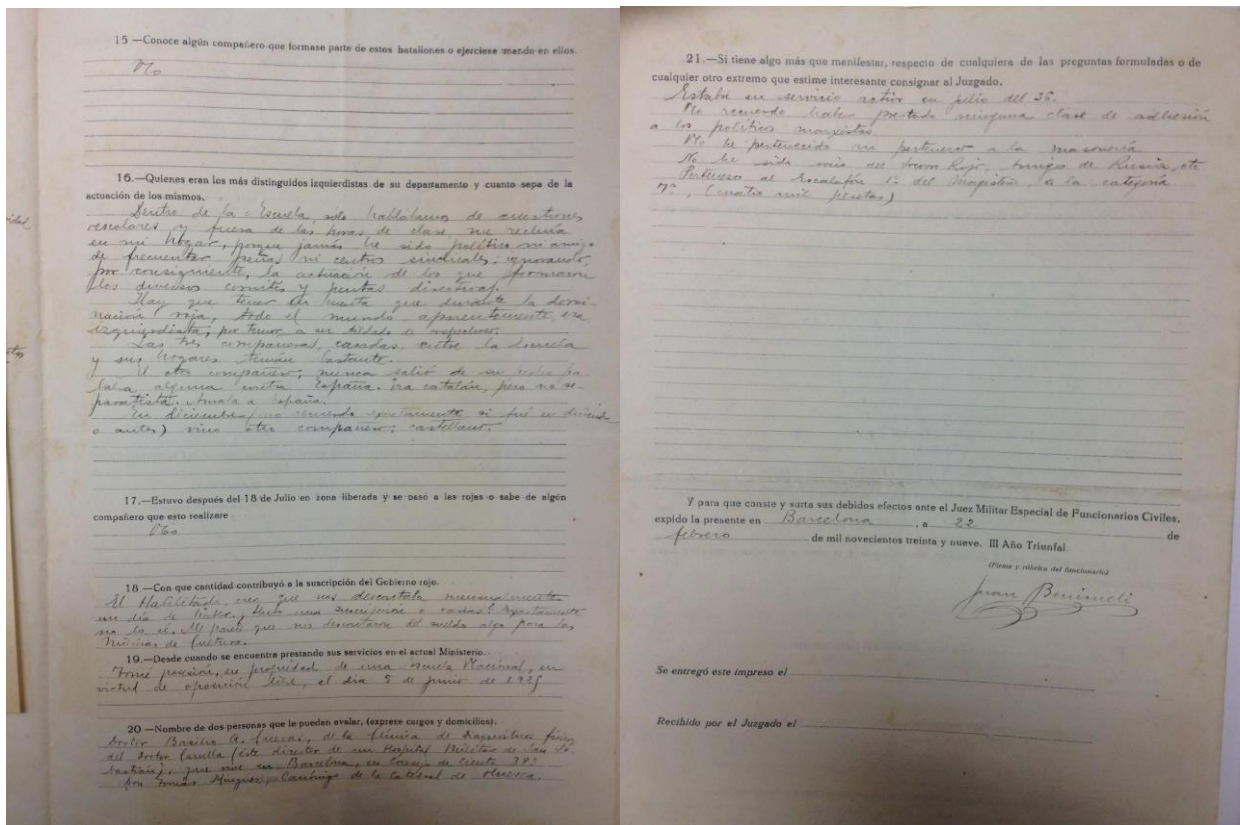 15 —Conoce algún compañero que formase parte de estos batallones o ejerciese mando en ellos.
No
16.—Quienes eran los más distinguidos izquierdistas de su departamento y cuanto sepa de la
actuación de los mismos.
Dentro de la Escuela, sólo hablábamos de cuestiones
escolares y fuera de las horas de clase, me recluía
en mi hogar, porque jamás he sido político ni amigo
de frecuentar peñas ni centros sindicales; ignorando,
por consiguiente, la actuación de los que formaron
los diversos comités y juntas directivas.
Hay que tener en cuenta que durante la domi-
nación roja, todo el mundo, aparentemente, era
izquierdista, por temor a ser tildado de sospechoso.
Las tres compañeras, casadas, entre la Escuela
y sus hogares tenían bastante.
El otro compañero, nunca salió de su pa-
labra alguna contra España. Era catalán, pero no se-
paratista. Amaba a España.
En diciembre (no recuerdo exactamente si fué en diciembre
o antes) vino otro compañero; castellano.
17.—Estuvo después del 18 de Julio en zona liberada y se pasó a las rojas o sabe de algún
compañero que esto realizare
No
18 —Con que cantidad contribuyó a la suscripción del Gobierno rojo.
El Habilitado, creo que nos descontaba mensualmente
un día de haber. ¿Hubo una suscripción o varias? Exactamente
no lo sé. Me parece que nos descontaron del sueldo algo para las
Milicias de Cultura.
19.—Desde cuando se encuentra prestando sus servicios en el actual Ministerio.
Tomé posesión, en propiedad de una escuela Nacional, en
virtud de oposición libre, el día 5 de junio de
20 —Nombre de dos personas que le puedan avalar, (exprese cargos y domicilios).
Doctor Basilio A. Cuevas, de la Clínica de Diagnóstico
del Doctor (éste director de un Hospital Militar de San Se-
bastián), que vive en Barcelona, en Consejo de Ciento
Don Tomás Canónigo de la Catedral de Huesca.
21.—Si tiene algo más que manifestar, respecto de cualquiera de las preguntas formuladas o de
cualquier otro extremo que estime interesante consignar al Juzgado.
Estaba en servicio activo en julio del 36.
No recuerdo haber prestado ninguna clase de adhesión
a los políticos marxistas
No he pertenecido ni pertenezco a la masonería
No he sido socio del Socorro Rojo, Amigo de Rusia, etc
Pertenezco al Escalafón 1º del Magisterio, a la categoría
7ª, (cuatro mil pesetas)
Y para que conste y surta sus debidos efectos ante el Juez Militar Especial de Funcionarios Civiles,
expido la presente en Barcelona, a 22 de
febrero de mil novecientos treinta y nueve. III Año Triunfal.
(Firma y rúbrica del funcionario)
Juan Benimeli
Se entregó este impreso el
Recibido por el Juzgado el